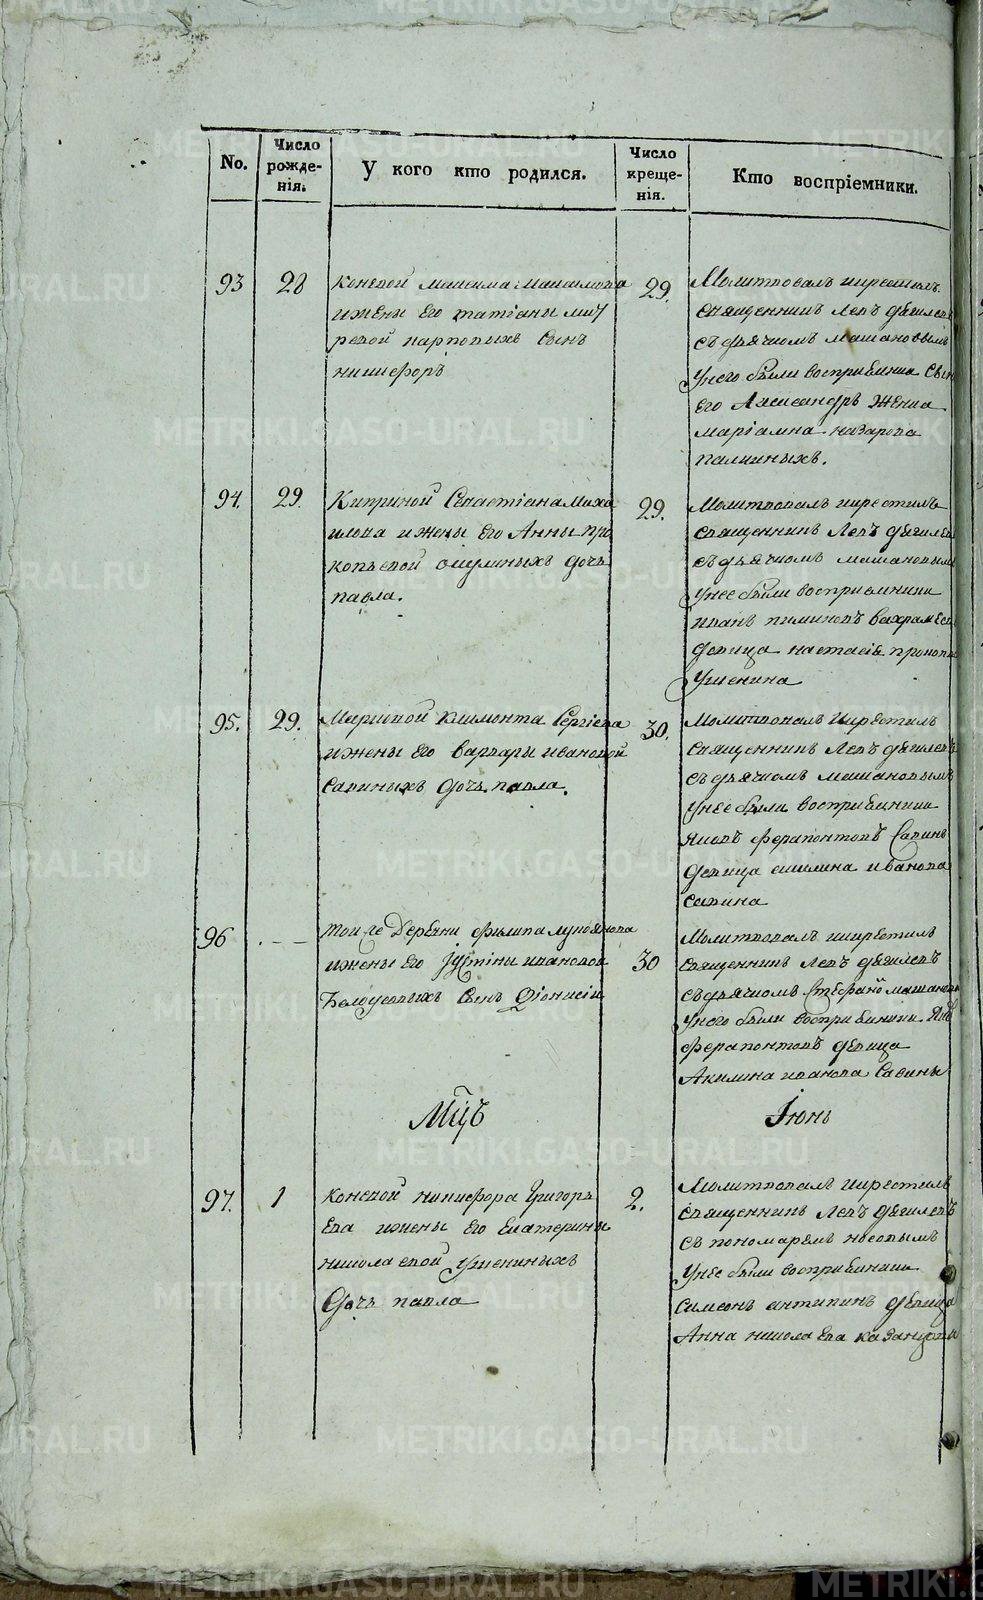 No.
Число рожде-нія.
У кого кто родился.
Число креще-нія.
Кто воспріемники.
93
28
коневой максима максимова
ижены его татіаны
ревой карповыхъ сынъ
никифоръ
29.
Молитвовалъ икрестилъ
священникъ левъ
съ дьячкомъ
Унего были восприемники
его Александръ женка
маріамна назарова
94.
29.
Киприной Севастіана Миха
илова ижены его Анны про
копьевой дочь
павла.
29.
Молитвовалъ икрестилъ
священникъ левъ
съ дьячкомъ
Унее были восприемники
иванъ пименовъ
девица настасія
Ушенина
95.
29.
климонта Сергіева
ижены его варвары ивановой
савиныхъ дочь павла.
30.
Молитвовалъ икрестилъ
священникъ левъ
съ дьячкомъ
Унее были восприемники
яковъ ферапонтовъ Савинъ
девица акилина иванова
савина
96
тои же деревни филипа
ижены его іустіны ивановой
Белоусовыхъ сынъ Діонисій
30
Молитвовалъ икрестилъ
священникъ левъ
съ дьячкомъ Стефаномъ
Унего были восприемники
ферапонтовъ девица
Акилина иванова Савины
Мцъ
Іюнь
97.
1
коневой никифора Григорь
ева ижены его екатерины
николаевой ушениныхъ
Дочь павла
2.
Молитвовалъ икрестилъ
священникъ левъ
съ пономаремъ носовымъ
Унее были восприемники
симеонъ антипинъ девица
Анна николаева
METRIKI.GASO-URAL.RU